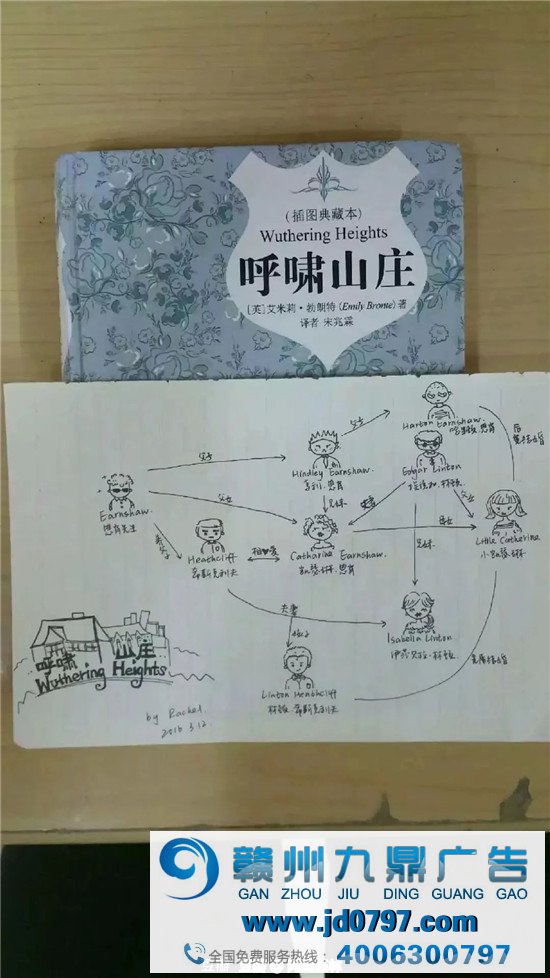 (插图典藏本)
Wuthering Heights
呼啸山庄
[英]艾米莉·勃朗特(Emily Bronte)著
译者 宋兆霖
Harton Earnshaw.
父子
父子
Hindley Earnshaw.
Edgar Linton
后
结婚
Earnshaw.
恩肖先生
父女
兄妹
夫妻
父女
母女
Little Catherine
小凯瑟琳
养父子
Heathcliff
希斯克利夫
相爱
Catharine Earnshaw.
凯瑟琳.恩肖
兄妹
夫妻
Isabella Linton
伊莎贝拉·林顿
先结婚
呼啸山庄
Wuthering Heights
Linton Heathcliff
林顿.希斯克利夫
by Rachel.
2016.3.12.
赣州九鼎广告
GAN ZHOU JIU DING GUANG GAO
www.jd0797.com
全国免费服务热线：4006300797